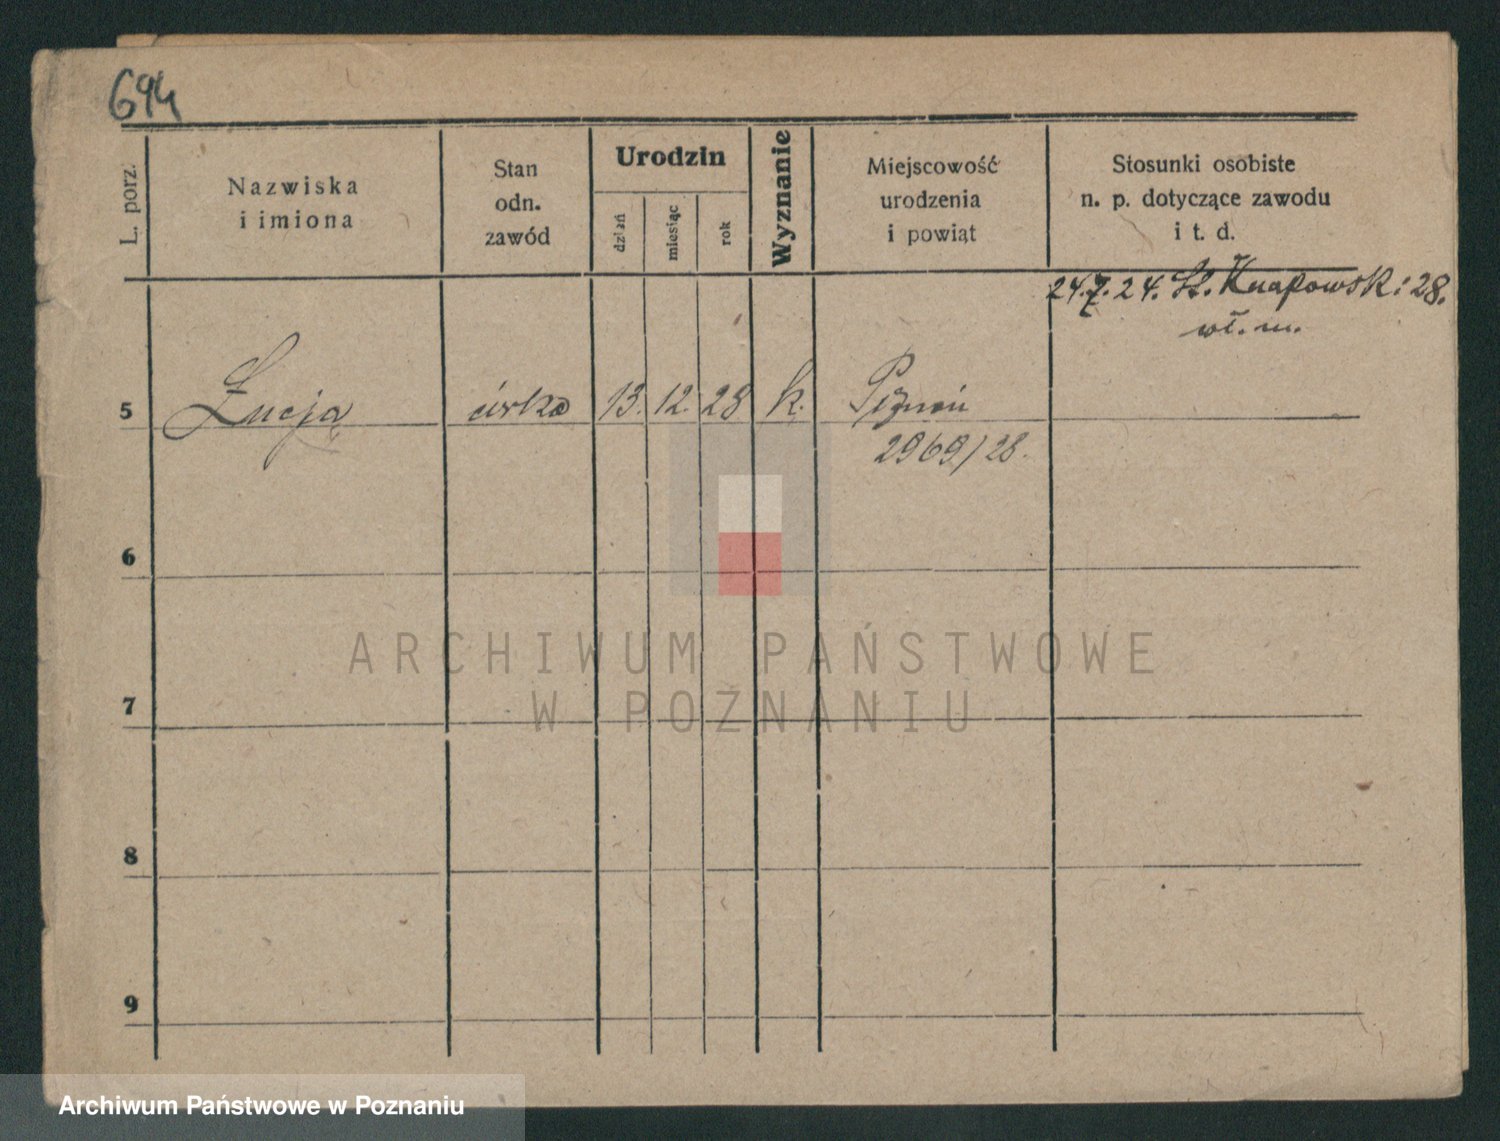 694
L. porz.
Nazwiska
i imiona
Stan
odn.
zawód
Urodzin
dzień
miesiąc
rok
Wyznanie
Miejscowość
urodzenia
i powiąt
Stosunki osobiste
n. p. dotyczące zawodu
i t. d.
24.7.24. St. Knapowski 28.
wł. m.
5 Łucja córka 13. 12. 28 k. Poznań
2969/28.
6
7
8
9
ARCHIWUM PAŃSTWOWE
W POZNANIU
Archiwum Państwowe w Poznaniu